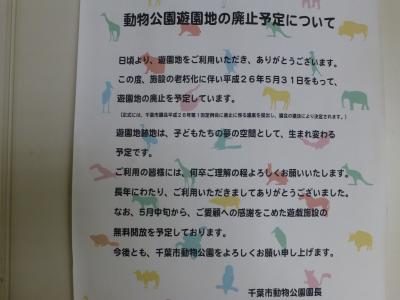 動物公園遊園地の廃止予定について
日頃より、遊園地をご利用いただき、ありがとうございます。
この度、施設の老朽化に伴い平成26年5月31日をもって、
遊園地の廃止を予定しています。
(正式には、千葉市議会平成26年第1回定例会に廃止に係る議案を提出し、議会の議決により決定されます。)
遊園地跡地は、子どもたちの夢の空間として、生まれ変わる
予定です。
ご利用の皆様には、何卒ご理解の程よろしくお願いします。
長年にわたり、ご利用いただきましてありがとうございました。
なお、5月中旬から、ご愛顧への感謝をこめた遊戯施設の
無料開放を予定しております。
今後とも、千葉市動物公園をよろしくお願い申し上げます。
千葉市動物公園園長